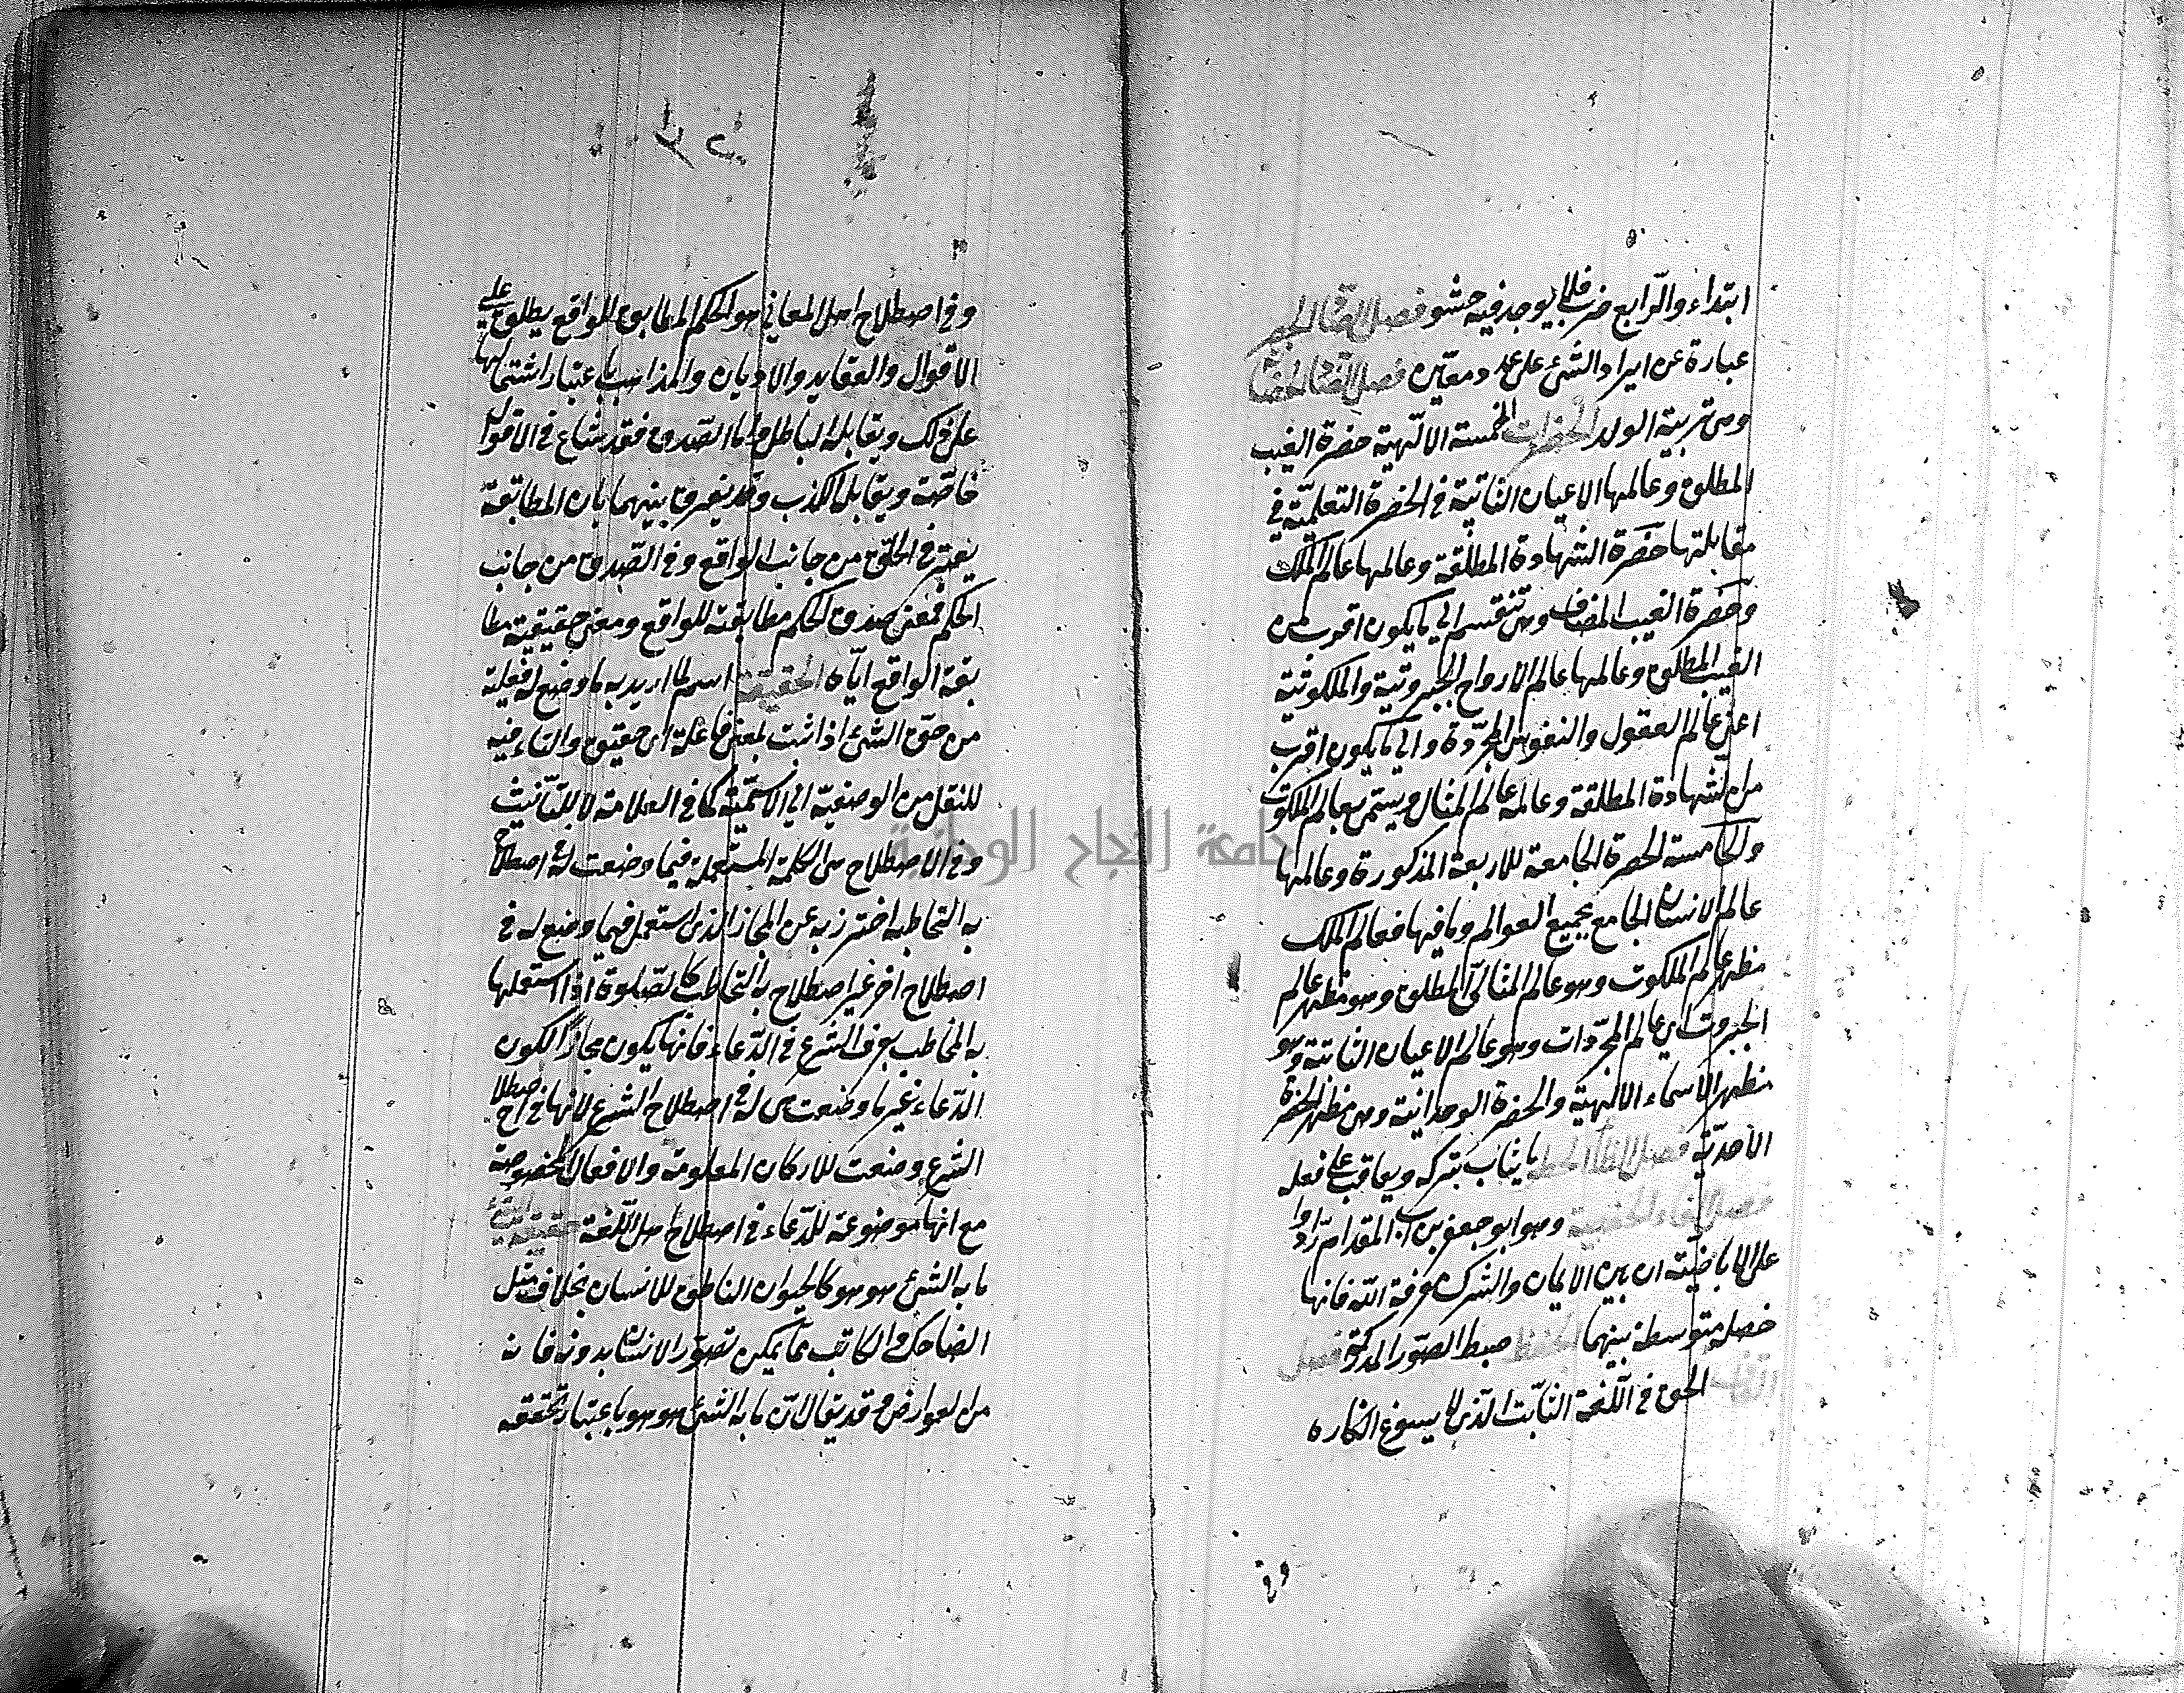 ابتداء والرّابع ضرب فلا يوجد فيه حشو فصل الضاد الحصر
عبارة عن ايراد الشئ على عدد معيّن فصل الضاد الحضانة
وهى تربية الولد الحضرات الخمسة الالٓهية حضرة الغيب
المطلق وعالمها الاعيان الثابتة فى الحضرة العلميّة فى
مقابلتها حضرة الشهادة المطلقة وعالمها عالم الملك
وحضرة الغيب المضاف وهى تنقسم الى ما يكون اقرب من
الغيب المطلق وعالمها عالم الارواح الجبروتية والملكوتية
اعنى عالم العقول والنفوس المجرّدة والى ما يكون اقرب
من الشهادة المطلقة وعالمه عالم المثال ويستمى بعالم الملكوت
والخامسة الحضرة الجامعة للاربعة المذكورة وعالمها
عالم الانسان الجامع بجميع العوالم وما فيها فعالم الملك
مظهر عالم الملكوت وهو عالم المثالى المطلق وهو مظهر عالم
الجبروت اى عالم المجرّدات وهو عالم الاعيان الثابتة وهو
مظهر الاسماء الالٓهية والحضرة الوحدانية وهى مظهر الحضرة
الاحديّة فصل الظاء الحظر ما يثاب بتركه ويعاقب على فعله
فصل الفاء الحفصية وهو ابو جعفر بن ابى المقدام زادوا
على الاباضيّة ان بين الايمان والشرك معرفة الله فانها
خصلة متوسطة بينهما الحفظ ضبط الصّور المدركة فصل
القاف الحق فى اللّغة الثّابت الّذى لا يسوغ انكاره
وفى
وفى اصطلاح اهل المعانى هو الحكم المطابق للواقع يطلق على
الاقوال والعقايد والاديان والمذاهب باعتبار اشتمالها
على ذلك ويقابله الباطل واما الصّدق فقد شاع فى الاقوال
خاصّة ويقابله الكذب وقد يفرق بينهما بان المطابقة
يعتبر فى الحقّ من جانب الواقع وفى الصّدق من جانب
الحكم فمعنى صدق الحكم مطابقته للواقع ومعنى حقيقيته مطا
بقة الواقع ايّاه الحقيقة اسم لما اريد به ما وضع له فعلية
من حقّ الشئ اذا ثبت بمعنى فاعلة اى حقيق والتاء فيه
للنقل من الوصفية الى الاسميّة كما فى العلامة لا للتّانيث
وفى الاصطلاح هى الكلمة المستعملة فيما وضعت له فى اصطلاح
به التخاطب احترز به عن المجاز الذى استعمل فيما وضع له فى
اصطلاح اخر غير اصطلاح به التخاطب كالصّلوة اذا استعملها
به المخاطب بعرف الشرع فى الدّعاء فانها يكون مجازا لكون
الدّعاء غير ما وضعت هى له فى اصطلاح الشرع لانها فى اصطلاح
الشرع وضعت للاركان المعلومة والافعال المخصوصة
مع انها موضوعة للدّعاء فى اصطلاح اهل اللّغة حقيقة الشئ
ما به الشئ هو هو كالحيوان الناطق للانسان بخلاف مثل
الضاحك والكاتب ممّا يمكن تصوّر الانسان بدونه فانه
من العوارض وقد يقال انّ ما به الشئ هو هو باعتبار تحققه
جامعة النجاح الوطنية